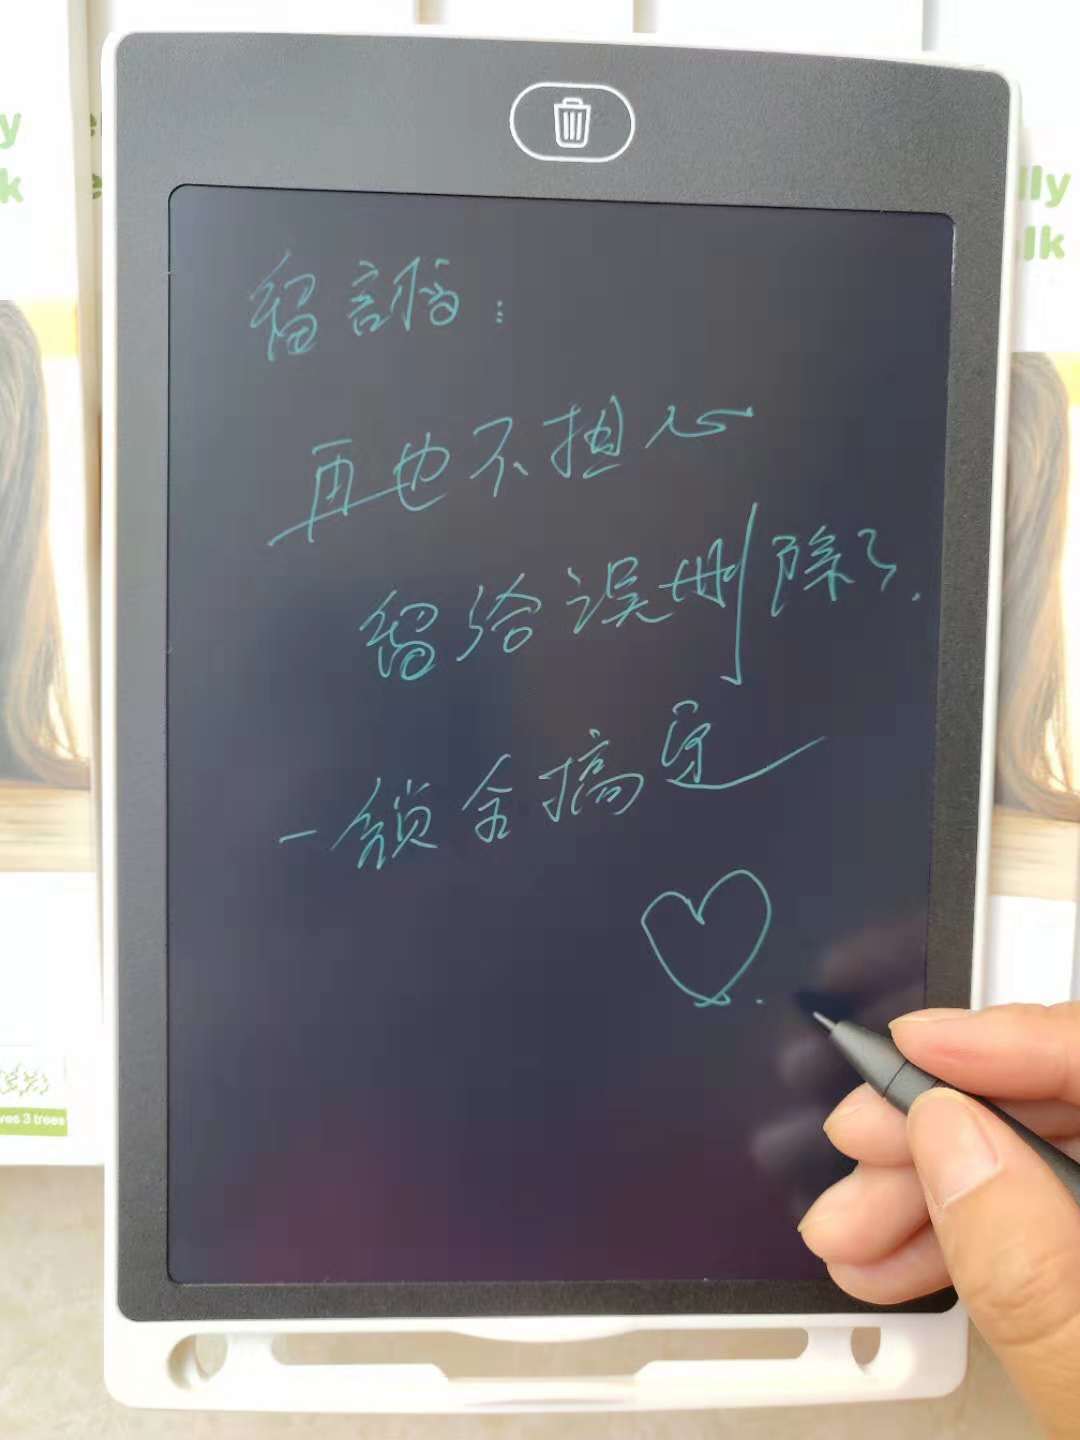 留言:
再也不担心
留给误删除了.
一锁全搞定
lly
lk
ly
k
3 trees